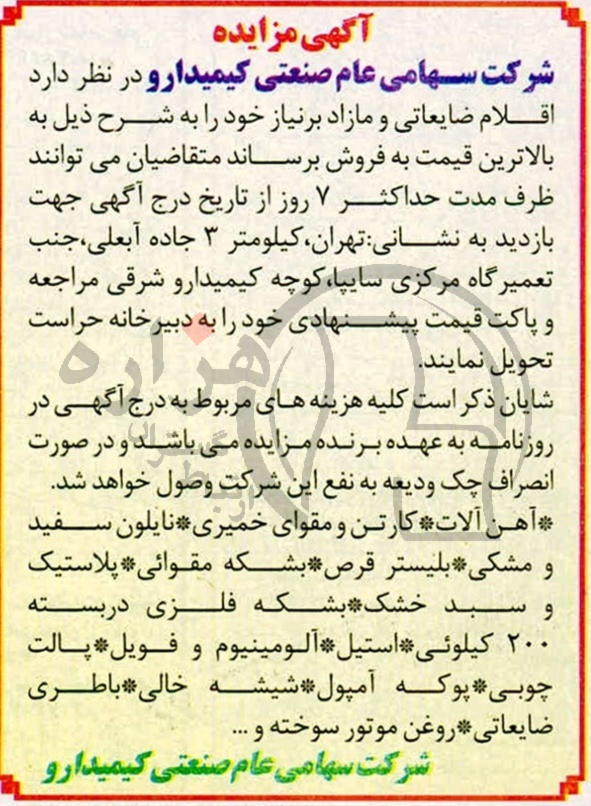 آگهی مزایده
شرکت سهامی عام صنعتی کیمیدارو در نظر دارد
اقلام ضایعاتی و مازاد برنیاز خود را به شرح ذیل به
بالاترین قیمت به فروش برساند متقاضیان می توانند
ظرف مدت حداکثر ۷ روز از تاریخ درج آگهی جهت
بازدید به نشانی:تهران،کیلومتر ۳ جاده آبعلی،جنب
تعمیرگاه مرکزی سایپا،کوچه کیمیدارو شرقی مراجعه
و پاکت قیمت پیشنهادی خود را به دبیرخانه حراست
تحویل نمایند.
شایان ذکر است کلیه هزینه های مربوط به درج آگهی در
روزنامه به عهده برنده مزایده می باشد و در صورت
انصراف چک ودیعه به نفع این شرکت وصول خواهد شد.
*آهن آلات*کارتن و مقوای خمیری*نایلون سفید
و مشکی*بلیستر قرص*بشکه مقوائی*پلاستیک
و سبد خشک*بشکه فلزی دربسته
۲۰۰ کیلوئی*استیل*آلومینیوم و فویل*پالت
چوبی*پوکه آمپول*شیشه خالی*باطری
ضایعاتی*روغن موتور سوخته و ...
شرکت سهامی عام صنعتی کیمیدارو
هزاره